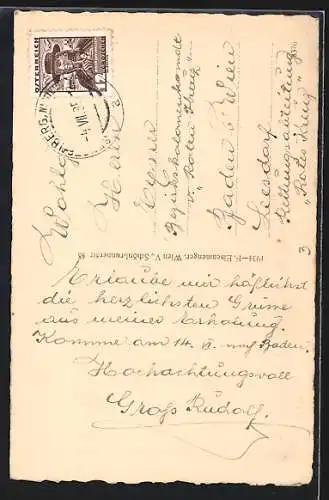 ÖSTERREICH
12
4. VII. 35
Wohlg.
Herrn
Bezirkskolonnenkomdt
v. "Roten Kreuz"
Baden b/Wien
Leesdorf
Rettungsabteilung
"Rotes Kreuz"
1934—F. Elsenmenger, Wien V., Schönbrunnerstr. 88
Erlaube mir höflichst
die herzlichsten Grüsse
aus meiner Erholung.
Komme am 14. nach Baden.
Hochachtungsvoll
Groß Rudolf.
3